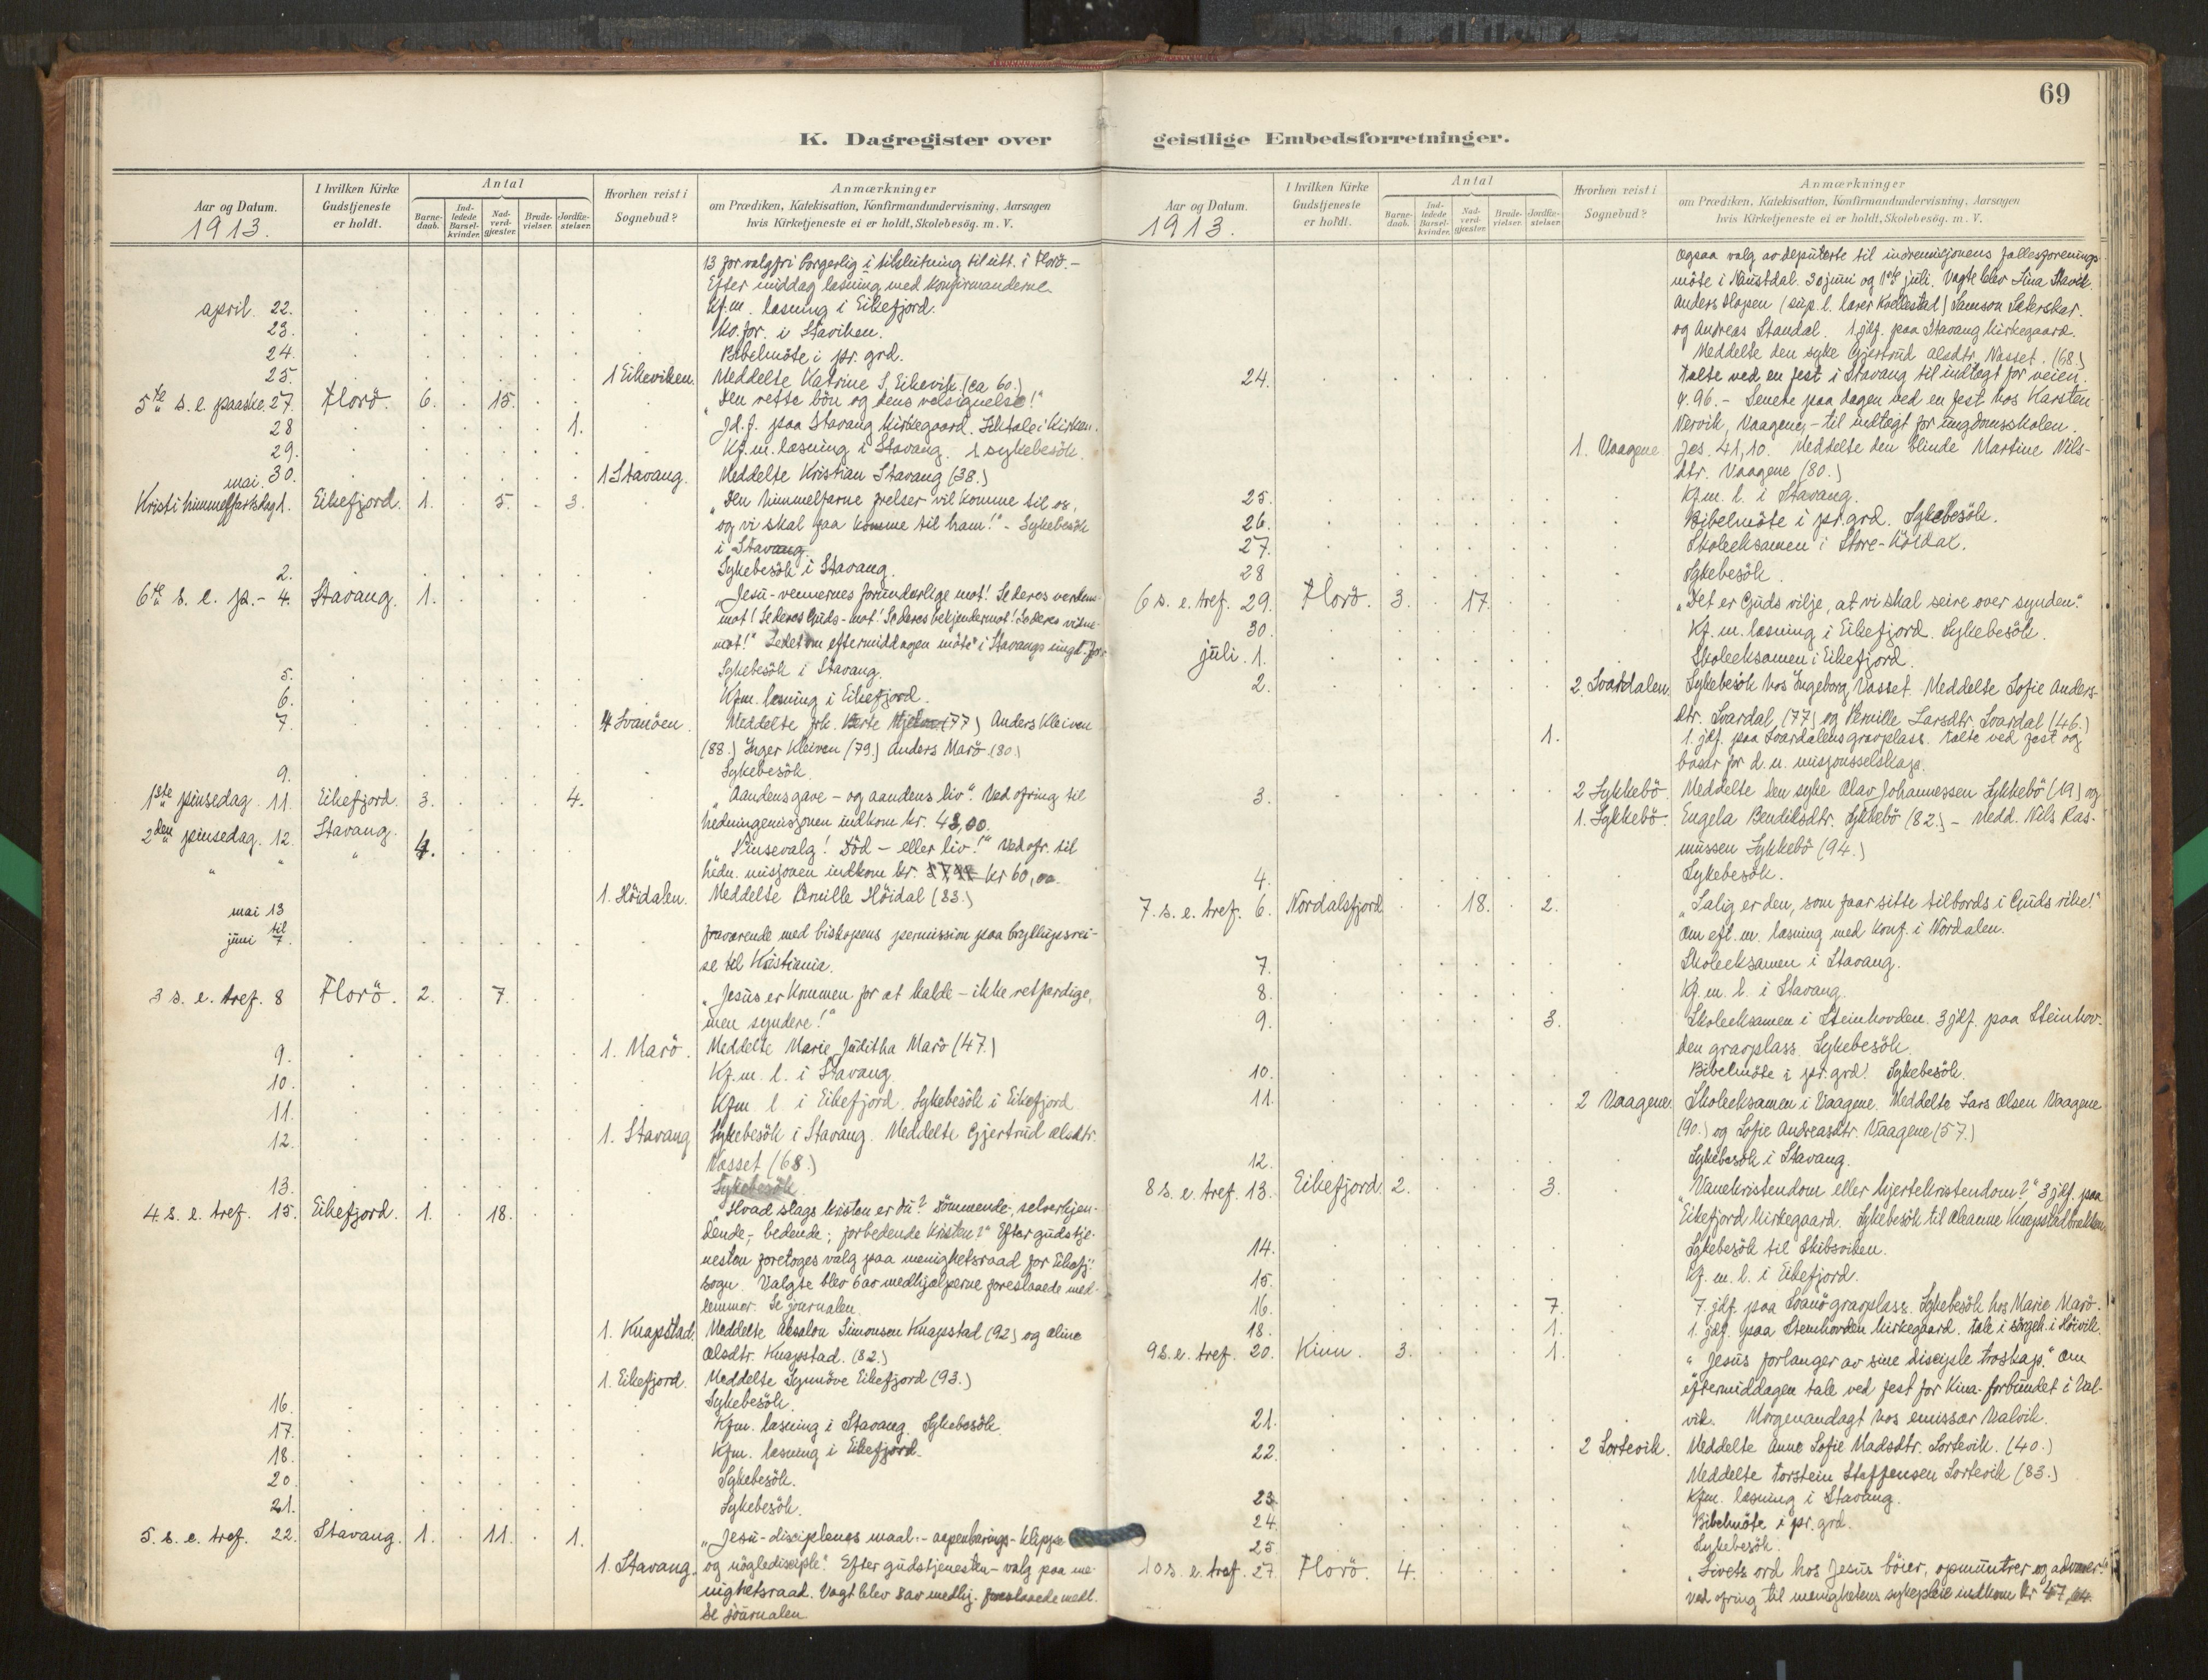 69
K. Dagregister over geistlige Embedsforretninger.
Aar og Datum.
1913.
I hvilken Kirke Gudstjeneste er holdt.
Antal
Barnedaab.
Indledede Barselkvinder.
Nadverdgjæster.
Brudevielser.
Jordfæstelser.
Hvorhen reist i Sognebud?
Anmærkninger
om Prædiken, Katekisation, Konfirmandundervisning, Aarsagen
hvis Kirketjeneste ei er holdt, Skolebesøg. m. V.
13 for valgfri borgerlig i tilslutning til utt. i Florö.-
Efter middag læsning med konfirmanderne.
april 22. Kf.m. læsning i Eikefjord.
23. Kg. for. i Staviken.
24. Bibelmöte i pr. grd.
25. 1 Eikeviken. Meddelte Katrine S. Eikevik (ca 60.)
5te s. e. paaske. 27. Florö. 6. 15. „Den rette bön og dens velsignelse!"
28 1. Jd.f. paa Stavang kirkegaard. Liktale i kirken.
29. Kf.m. læsning i Stavang. 1 sykebesök.
30. 1 Stavang. Meddelte Kristian Stavang (38.)
mai.
Kristi himmelfartsdag 1. Eikefjord. 1. 5. 3. „Den himmelfarne frelser vil komme til os,
og vi skal faa komme til ham!" - Sykebesök
i Stavang.
2. Sykebesök i Stavang.
6te s. e. p.- 4. Stavang. 1. „Jesu-vennernes forunderlige mot! Se deres verdens-
mot! Se deres Guds-mot! Se deres bekjendermot! Se deres vidne-
mot!" Ledet om eftermiddagen möte i Stavangs ungd. for.
5. Sykebesök i Stavang.
6. Kfm. læsning i Eikefjord.
7. 4 Svanöen. Meddelte frk. Berte (77) Anders Kleiven
(88.) Inger Kleiven (79.) Anders Marö (80)
9. Sykebesök.
1ste pinsedag. 11. Eikefjord. 3. 4. „Aandens gave - og aandens liv". Ved ofring til
hedningemisjonen indkom kr. 48,00.
2den pinsedag. 12. Stavang. 4. „Pinsevalg! Död - eller liv!" Ved ofr. til
" " hedn. misjonen indkom kr. kr 60,00.
" 1. Höidalen. Meddelte Pernille Höidal (83.)
mai 13
til
juni 7. fraværende med biskopens permission paa bryllupsrei-
se til Kristiania.
3 s. e. tref. 8 Florö. 2. 7. „Jesus er kommen for at kalde - ikke retfærdige,
men syndere!"
9. 1. Marö. Meddelte Marie Juditha Marö (47.)
10. Kf.m. l. i Stavang.
11. Kfm l. i Eikefjord. Sykebesök i Eikefjord
12. 1. Stavang Sykebesök i Stavang. Meddelte Gjertrud Olsdtr.
Nasset (68.)
13. Sykebesök
4. s. e. tref. 15. Eikefjord. 1. 18. „Hvad slags kristen er du? Dömmende-, selverkjen-
dende-, bedende-; forbedende kristen?" Efter gudstje-
nesten foretoges valg paa menighetsraad for Eikefj.
sogn. Valgte blev 6 av medhjælperne foreslaaede med-
lemmer. Se journalen.
1. Knapstad. Meddelte Absalon Simonsen Knapstad (92) og Oline
Olsdtr. Knapstad. (82.)
1. Eikefjord. Meddelte Synnöve Eikefjord (93.)
16. Sykebesök.
17. Kfm. læsning i Stavang. Sykebesök.
18. Kfm. læsning i Eikefjord.
20. Sykebesök.
21. Sykebesök.
5. s. e. tref. 22. Stavang. 1. 11. 1. „Jesu-disciplenes maal:- aapenbarings-klippe
1. Stavang. og nögledisciple." Efter gudstjenesten - valg paa me-
nighetsraad. Vagt blev 8 av medhj. foreslaaede medl.
Se journalen
Aar og Datum.
1913.
I hvilken Kirke Gudstjeneste er holdt.
Antal
Barnedaab.
Indledede Barselkvinder.
Nadverdgjæster.
Brudevielser.
Jordfæstelser.
Hvorhen reist i Sognebud?
Anmærkninger
om Prædiken, Katekisation, Konfirmandundervisning, Aarsagen
hvis Kirketjeneste ei er holdt, Skolebesøg. m. V.
Ogsaa valg av deputerte til indremisjonens fællesforenings-
möte i Naustdal 30 juni og 1ste juli. Vagte blev Lina Stavik.
Anders Hopen (sup. l. lærer Kvellestad) Samson Sæterskar.
og Andreas Standal. 1. jdf. paa Stavang kirkegaard.
Meddelte den syke Gjertrud Olsdtr. Nasset. (68.)
24. Talte ved en fest i Stavang til indtægt for veien.
4. 96. - Senere paa dagen ved en fest hos Karsten
Nervik, Vaagene, - til indtægt for ungdomsskolen.
1. Vaagene Jes. 41,10. Meddelte den blinde Martine Nils-
dtr. Vaagene (80.)
25. Kf.m. l. i Stavang.
26. Bibelmöte i pr.grd. Sykebesök.
27. Skoleeksamen i Store-Höidal.
28 Sykebesök.
6 s. e. tref. 29. Florö. 3. 17. „Det er Guds vilje, at vi skal seire over synden."
30. Kf. m. læsning i Eikefjord. Sykebesök.
juli. 1. Skoleeksamen i Eikefjord.
2. 2. Svardalen. Sykebesök hos Ingeborg Nasset. Meddelte Sofie Anders-
dtr. Svardal (77) og Pernille Larsdtr. Svardal (46.)
1. 1. jdf. paa Svardalens gravplass. Talte ved fest og
basar for d. n. misjonsselskap.
3. 2 Lykkebö. Meddelte den syke Olav Johannessen Lykkebö (19) og
1. Lykkebö. Engela Bendiksdtr. Lykkebö (82.) - Medd. Nils Ras-
mussen Lykkebö (94.)
4. Sykebesök.
7. s. e. tref. 6. Nordalsfjord 18. 2. „Salig er den, som faar sitte tilbords i Guds rike!"
Om eft. m. læsning med konf. i Nordalen.
7. Skoleeksamen i Stavang.
8. Kf.m. l. i Stavang.
9. 3. Skoleeksamen i Steinhovden. 3 jdf. paa Steinhov-
den gravplass. Sykebesök.
10. Bibelmöte i pr.grd. Sykebesök.
11. 2 Vaagene. Skoleeksamen i Vaagene. Meddelte Lars Olsen Vaagene
(90.) og Sofie Andreasdtr. Vaagene (57.)
12. Sykebesök i Stavang.
8 s. e. tref. 13. Eikefjord. 2. 3. „Vanekristendom eller hjertekristendom?" 3 jdf. paa
Eikefjord kirkegaard. Sykebesök til Oleanne Knapstadbrekken
14. Sykebesök til Skibsviken.
15. Kf. m. l. i Eikefjord.
16. 7. 7. jdf. paa Svanö gravplass. Sykebesök hos Marie Marö.
18. 1. 1. jdf. paa Steinhovden kirkegaard. Tale i sörgeh. i Höivik.
9 s. e. tref. 20. Kinn. 3. 1. „Jesus forlanger av sine disciple troskap." Om
eftermiddagen tale ved fest for Kina-forbundet i Val-
vik. Morgenandagt hos emissær Valvik.
21.
22. 2 Sortevik. Meddelte Anne Sofie Madsdtr. Sortevik. (40.)
Meddelte Torstein Steffensen Sortevik (83.)
23. Kfm. læsning i Stavang.
24. Bibelmöte i pr. grd.
25 Sykebesök.
10 s. e. tref. 27. Florö. 4. „Livets ord hos Jesus böier, opmuntrer og advarer."
Ved ofring til menighetens sykepleie indkom kr 47,64.